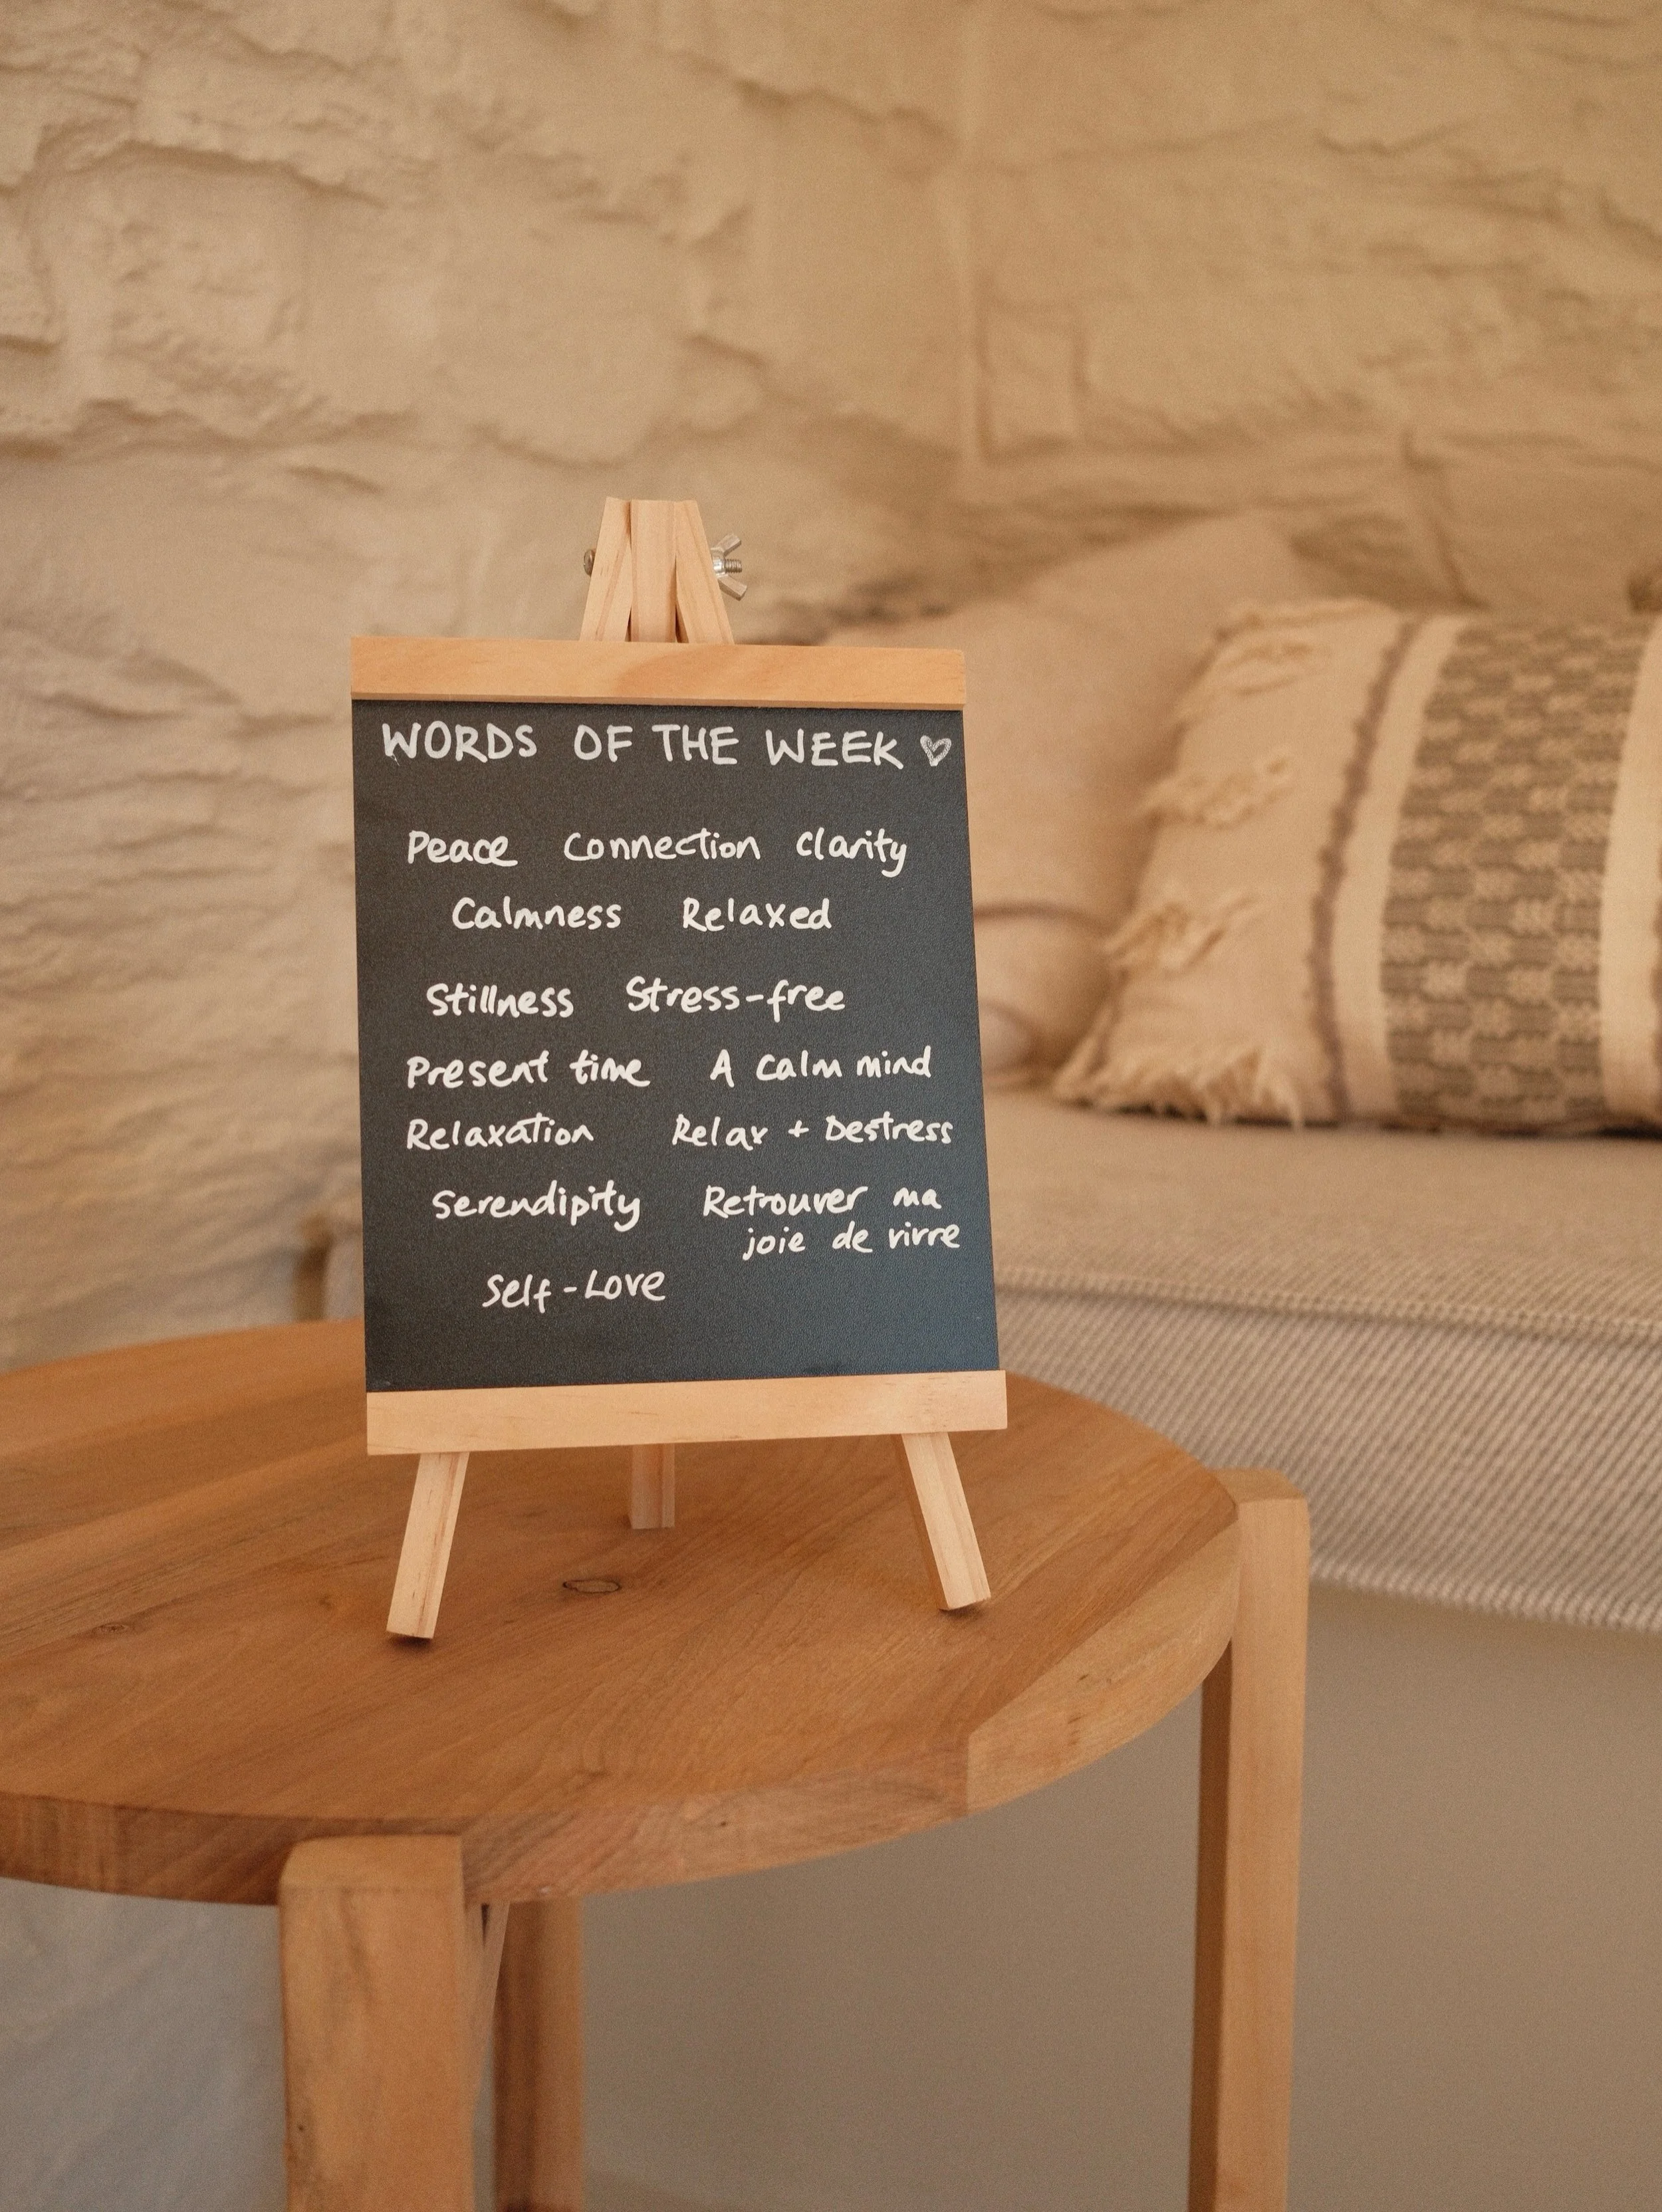 WORDS OF THE WEEK ♡
Peace Connection Clarity
Calmness Relaxed
Stillness Stress-free
Present time A calm mind
Relaxation Relax + Destress
Serendipity Retrouver ma
joie de vivre
Self-Love